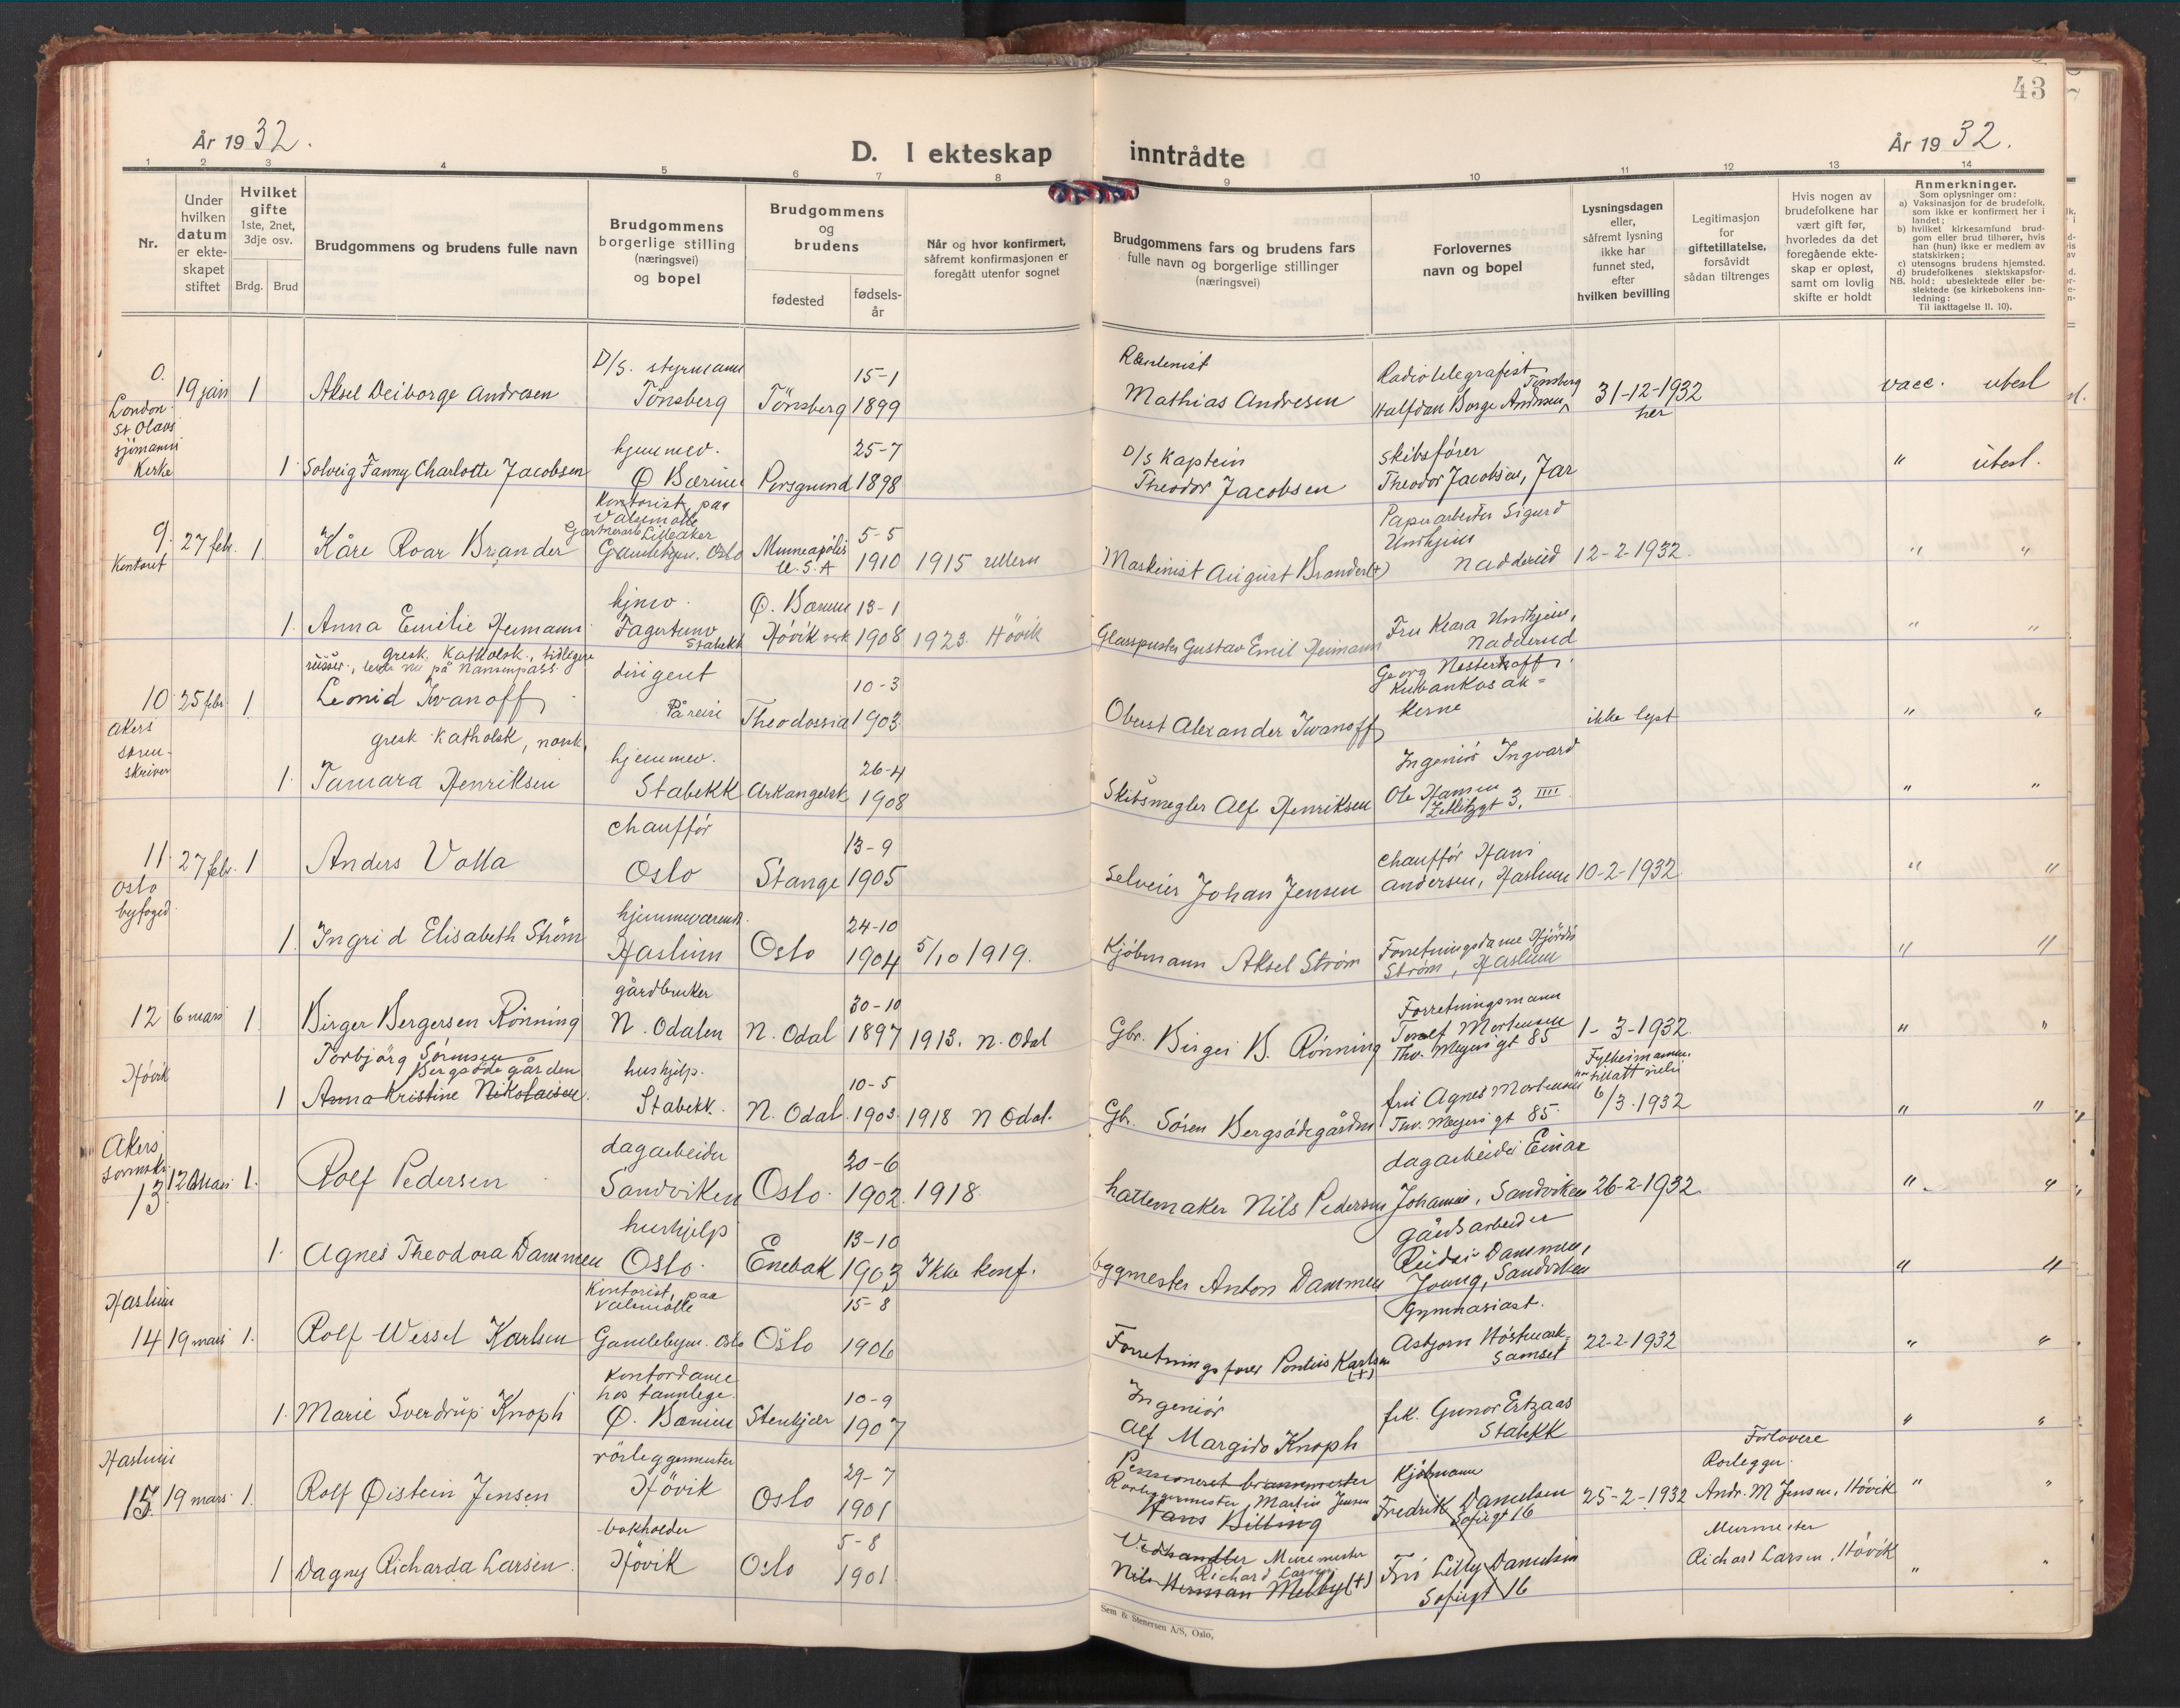 43
År 1932.
D. I ekteskap inntrådte
År 1932.
1 2 3 4 5 6 7 8 9 10 11 12 13 14
Nr.
Under hvilken datum er ekteskapet stiftet
Hvilket gifte
1ste, 2net, 3dje osv.
Brdg. Brud
Brudgommens og brudens fulle navn
Brudgommens borgerlige stilling (næringsvei) og bopel
Brudgommens og brudens
fødested
fødselsår
Når og hvor konfirmert, såfremt konfirmasjonen er foregått utenfor sognet
Brudgommens fars og brudens fars fulle navn og borgerlige stillinger (næringsvei)
Forlovernes navn og bopel
Lysningsdagen eller, såfremt lysning ikke har funnet sted, efter hvilken bevilling
Legitimasjon for giftetillatelse, forsåvidt sådan tiltrenges
Hvis nogen av brudefolkene har vært gift før, hvorledes da det foregående ekteskap er opløst, samt om lovlig skifte er holdt
Anmerkninger.
Som oplysninger om:
a) Vaksinasjon for de brudefolk, som ikke er konfirmert her i landet;
b) hvilket kirkesamfund brudgom eller brud tilhører, hvis han (hun) ikke er medlem av statskirken;
c) utensogns brudens hjemsted.
d) brudefolkenes slektskapsforhold: ubeslektede eller beslektede (se kirkebokens innledning:
NB. Til iakttagelse II. 10).
0. London St Olavs sjømanns Kirke
19 jan 1 Aksel Deiborge Andresen
D/S. styrmann Tönsberg
Tönsberg 15-1 1899
Mathias Andresen
Radiotelegrafist Halfdan Borge Andresen, Tønsberg
31-12-1932 her
vacc. ubesl
1 Solveig Fanny Charlotte Jacobsen
hjemmev. Ø Bærum
Porsgrund 25-7 1898
D/S Kaptein Theodor Jacobsen
Skibsfører Theodor Jacobsen, Jar
" ubesl.
9. Kontoret
27 febr. 1 Kåre Roar Brander
Gamlebyen. Oslo
Minneapolis U.S.A 5-5 1910
1915 Ullern
Maskinist August Brander (+)
Papirarbeider Sigurd Undhjem Nadderud
12-2-1932.
" "
1. Anna Emilie Heimann
hjmv. Fagertunv Stabekk
Ø. Bærum Hövik verk 13-1 1908
1923. Hövik
Glasspuster Gustav Emil Heimann
Fru Klara Undhjem, Nadderud
" "
gresk. Katholsk, tidligere russer, lever nu på Nansenpass.
10 Akers sorenskriver
25 febr. 1 Leonid Iwanoff
dirigent På reise
Theodossia 10-3 1903
Oberst Alexander Iwanoff
Georg Nesterhoff, Kubankosakkerne
ikke lyst
" "
gresk Katholsk, norsk,
1. Tamara Henriksen
hjemmev. Stabekk
Arkangelsk 26-4 1908
Skibsmegler Alf Henriksen
Ingeniör Ingvard Ole Hansen Zetlitzgt 3, IIII
" "
11 Oslo byfoged
27 febr. 1 Anders Volla
chaufför Oslo
Stange 13-9 1905
Selveier Johan Jensen
chaufför Hans Andersen, Haslum
10-2-1932.
" "
1. Ingrid Elisabeth Ström
hjemmeværende. Haslum
Oslo 24-10 1904
5/10 1919.
Kjöbmann Aksel Ström
Forretningsdame Hjördis Ström, Haslum
" "
12 Hövik
6 mars 1 Birger Bergersen Rönning
gårdbruker N. Odalen
N. Odal 30-10 1897
1913. N. Odal
Gbr. Birger B. Rönning
Forretningsmann Mortensen Thv. Meyers gt 85
1-3-1932.
" "
Torbjörg Sörensen Bergsödegården
1 Anna Kristine Nikolaisen.
hushjelp. Stabekk.
N. Odal. 10-5 1903
1918 N Odal.
Gbr. Sören Bergsödegården
fru Agnes Mortensen Thv. Meyers gt 85.
6/3.1932
" "
Akers sorenskr. 13
12 mars 1. Rolf Pedersen
dagarbeider Sandviken
Oslo. 20-6 1902.
1918
hattemaker Nils Pedersen
dagarbeider Einar Johansen, Sandviken
26-2-1932
" "
1. Agnes Theodora Dammen
hushjelp Oslo.
Enebak 13-10 1903
Ikke konf.
byggmester Anton Dammen
gårdsarbeider Dammen, Joung, Sandviken
" "
Haslum 14
19 mars 1. Rolf Wessel Karlsen
Kontorist, paa Valsemölle Gamlebyen. Oslo
Oslo 15-8 1906
Forretningsfører Pontus Karlsen (+)
Gymnasiast. Asbjørn Höstmark Samset
22-2-1932
" "
1. Marie Sverdrup Knoph
Kontordame hos tannlege. Ø. Bærum
Stenkjær 10-9 1907
Ingeniör Alf Margido Knoph
frk. Gunvor Ertzaas Stabekk
" "
Haslum 15.
19 mars 1. Rolf Øistein Jensen
rörleggermester Hövik
Oslo 29-7 1901
Pensioneret brannmester Rørleggermester, Martin Jensen Hans Billing
Kjöbmann Fredrik Danielsen Sofiegt 16
25-2-1932
Forlovere Rørlegger. Andr. M Jensen, Hövik
" "
1 Dagny Richarda Larsen.
bokholder Hövik
Oslo 5-8 1901
Vedhandler Murmester Richard Larsen Nils Herman Melby (+)
Fru Lilly Danielsen Sofiegt 16
Murmester Richard Larsen, Hövik
" "
Sem & Stenersen A/S, Oslo,